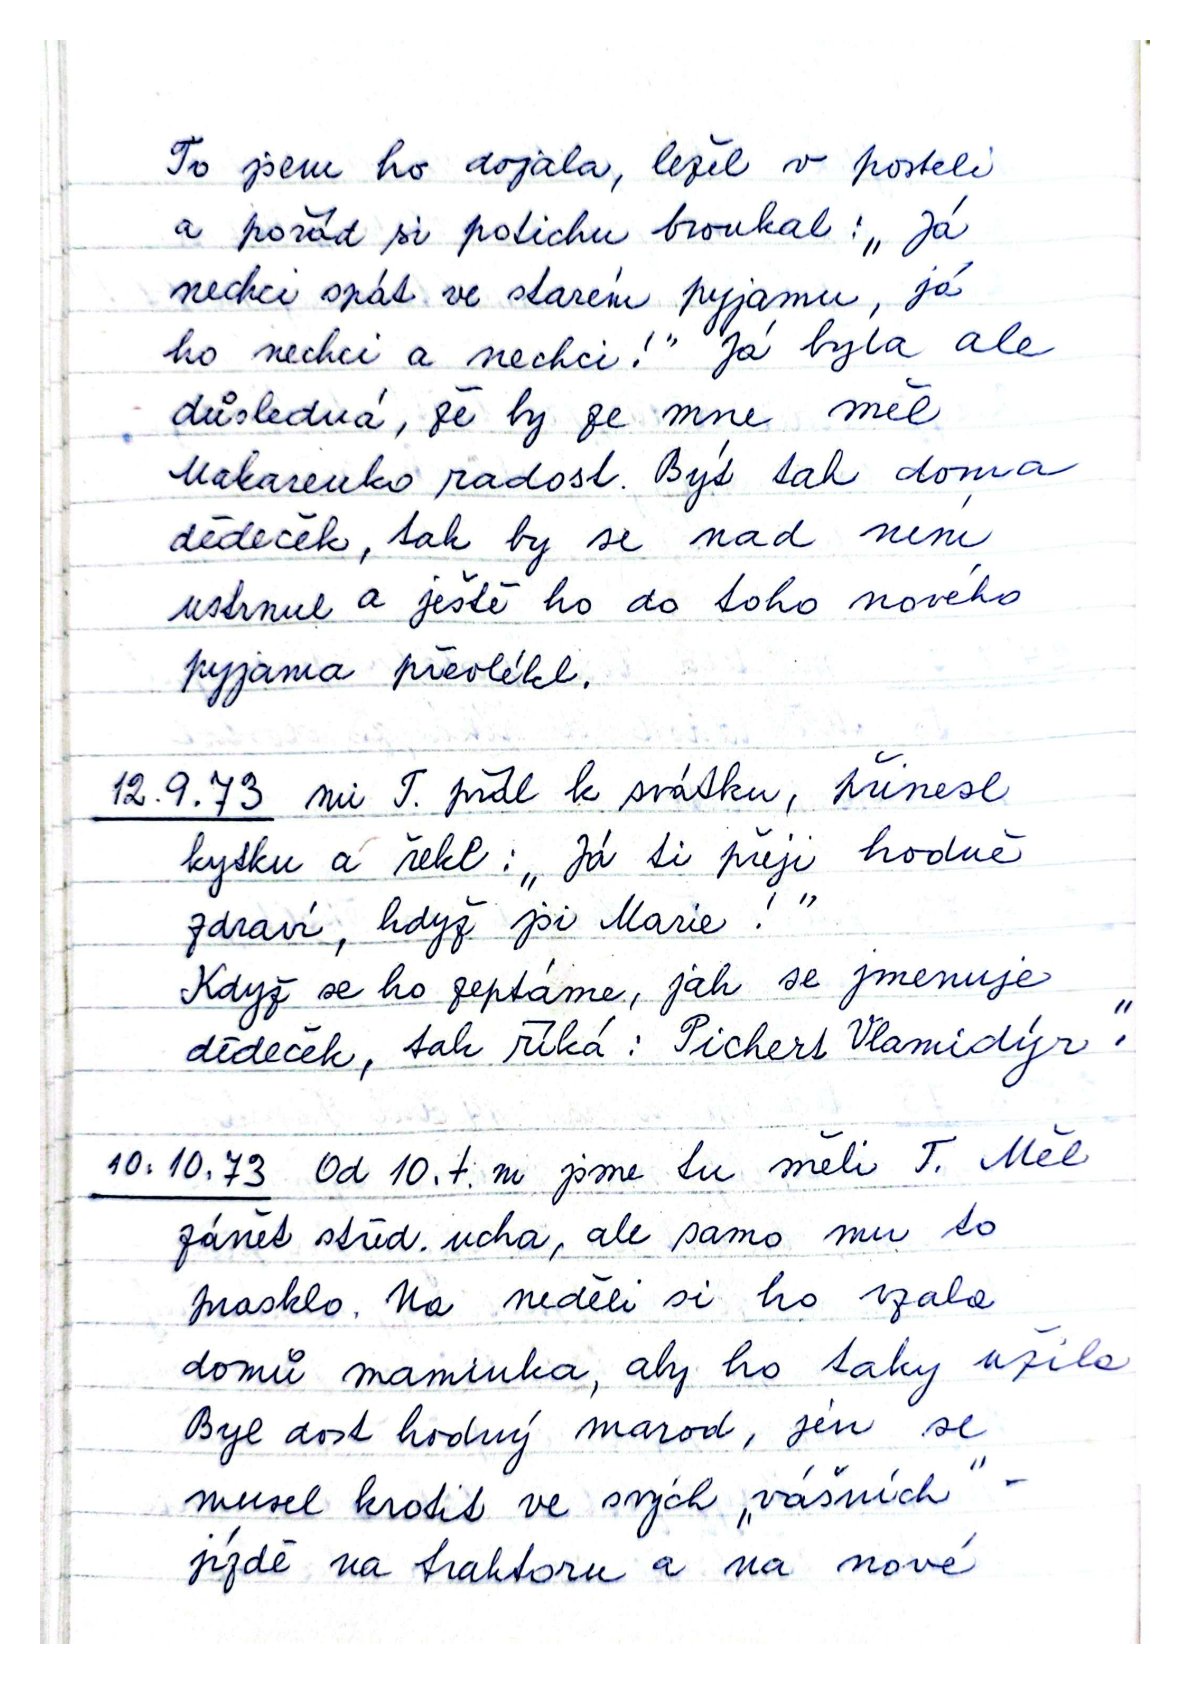 To jsem ho dojala, ležel v posteli
a pořád si potichu broukal: „Já
nechci spát ve starém pyjamu, já
ho nechci a nechci!" Já byla ale
důsledná, že by ze mne měl
Makarenko radost. Být tak doma
dědeček, tak by se nad ním
ustrnul a ještě ho do toho nového
pyjama převlékl.
12.9.73 mi T. přál k svátku, přinesl
kytku a řekl: „Já ti přeji hodně
zdraví, když jsi Marie!"
Když se ho zeptáme, jak se jmenuje
dědeček, tak říká: Pichert Vlamidýr".
10.10.73 Od 10.t.m jsme tu měli T. Měl
zánět střed. ucha, ale samo mu to
prasklo. Na neděli si ho vzala
domů maminka, aby ho taky užila
Byl dost hodný marod, jen se
musel krotit ve svých „vášních" -
jízdě na traktoru a na nové